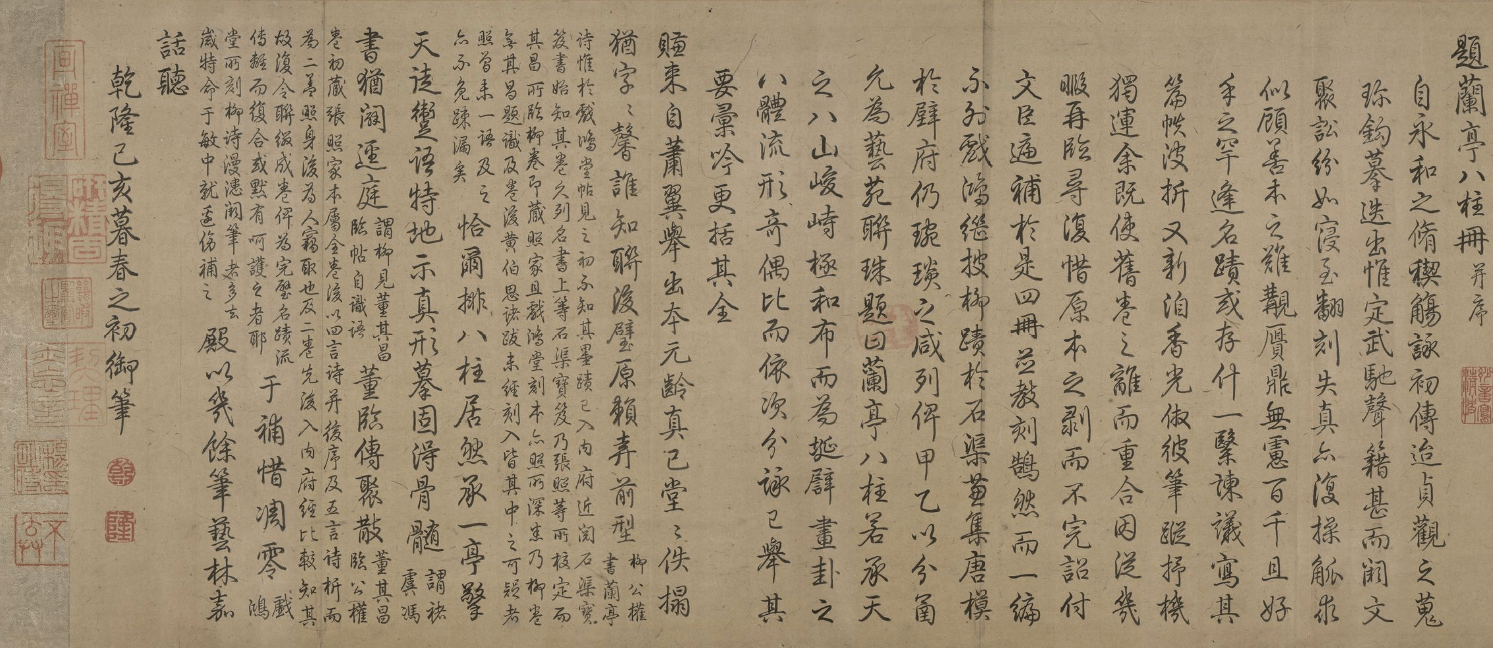 題蘭亭八柱冊并序
自永和之脩稧觴詠初傳迨貞觀之蒐
珍鉤摹迭出惟定武馳聲籍甚而闕文
聚訟紛如寖至翻刻失真亦復操觚求
似顧善本之難覯贋鼎無慮百千且好
手之罕逢名蹟或存什一緊諫議寫其
篇帙波折又新洎香光倣彼筆蹤抒機
獨運余既使舊卷之離而重合因從幾
暇再臨尋復惜原本之剥而不完詔付
文臣遍補於是四冊並教刻鵠然而一編
不外戲鴻繼披柳蹟於石渠兼集唐模
於壁府仍琬琰之咸列俾甲乙以分函
允為藝苑聯珠題曰蘭亭八柱若承天
之八山峻峙極和布而為埏辟畫卦之
八體流形奇偶比而依次分詠已舉其
要彙吟更括其全
賺來自蕭翼舉出本元齡真已堂〻佚搨
猶字〻馨誰知聯後璧原賴弆前型
柳公權
書蘭亭
詩惟於戲鴻堂帖見之初不知其墨蹟已入內府近閱石渠寶
笈書始知其卷久列名書上等石渠寶笈乃張照等所校定而
其昌所臨柳卷即藏照家且戲鴻堂刻本亦照所深悉乃柳卷
無其昌題識及卷後黃伯思諸跋未經刻入皆其中之可疑者
照曾未一語及之
亦不免踈漏矣
恰爾排八柱居然承一亭擎
天徒躗語特地示真形摹固得骨髓
謂褚
虞馮
書猶闖逕庭
謂柳見董其昌
臨帖自識語
董臨傳聚散
董其昌
臨公權
卷初藏張照家本屬全卷後以四言詩并後序及五言詩析而
為二蓋照身後為人竊取也及二卷先後入內府經比較知其
故復令聯綴成卷俾為完璧名蹟流
傳離而復合或默有呵護之者耶
于補惜凋零
戲
鴻
堂所刻柳詩漫漶闕筆者多去
歲特命于敏中就邊傍補之
殿以幾餘筆藝林嘉
話聽
乾隆己亥暮春之初御筆